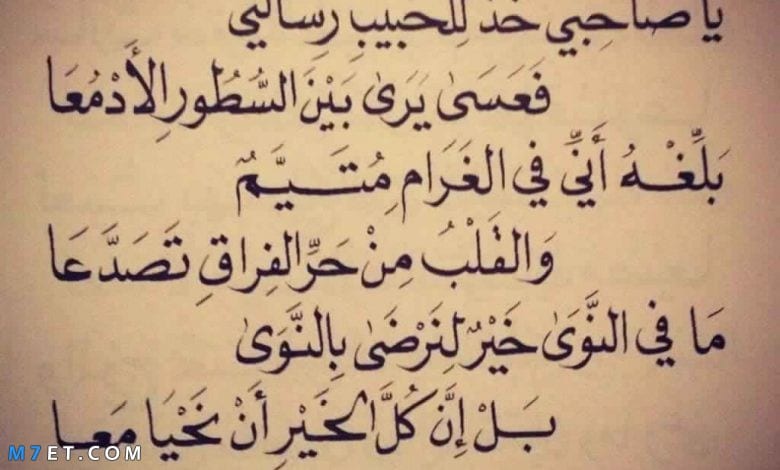 يَا صَاحِبِي خُذْ لِلْحَبِيبِ رِسَالَتِي
فَعَسَىٰ يَرَىٰ بَيْنَ السُّطُورِ الأَدْمُعَا
بَلِّغْهُ أَنِّي فِي الغَرَامِ مُتَيَّمٌ
وَالقَلْبُ مِنْ حَرِّ الفِرَاقِ تَصَدَّعَا
مَا فِي النَّوَىٰ خَيْرٌ لِنَرْضَىٰ بِالنَّوَىٰ
بَلْ إِنَّ كُلَّ الخَيْرِ أَنْ نَحْيَا مَعَا
M7ET.COM